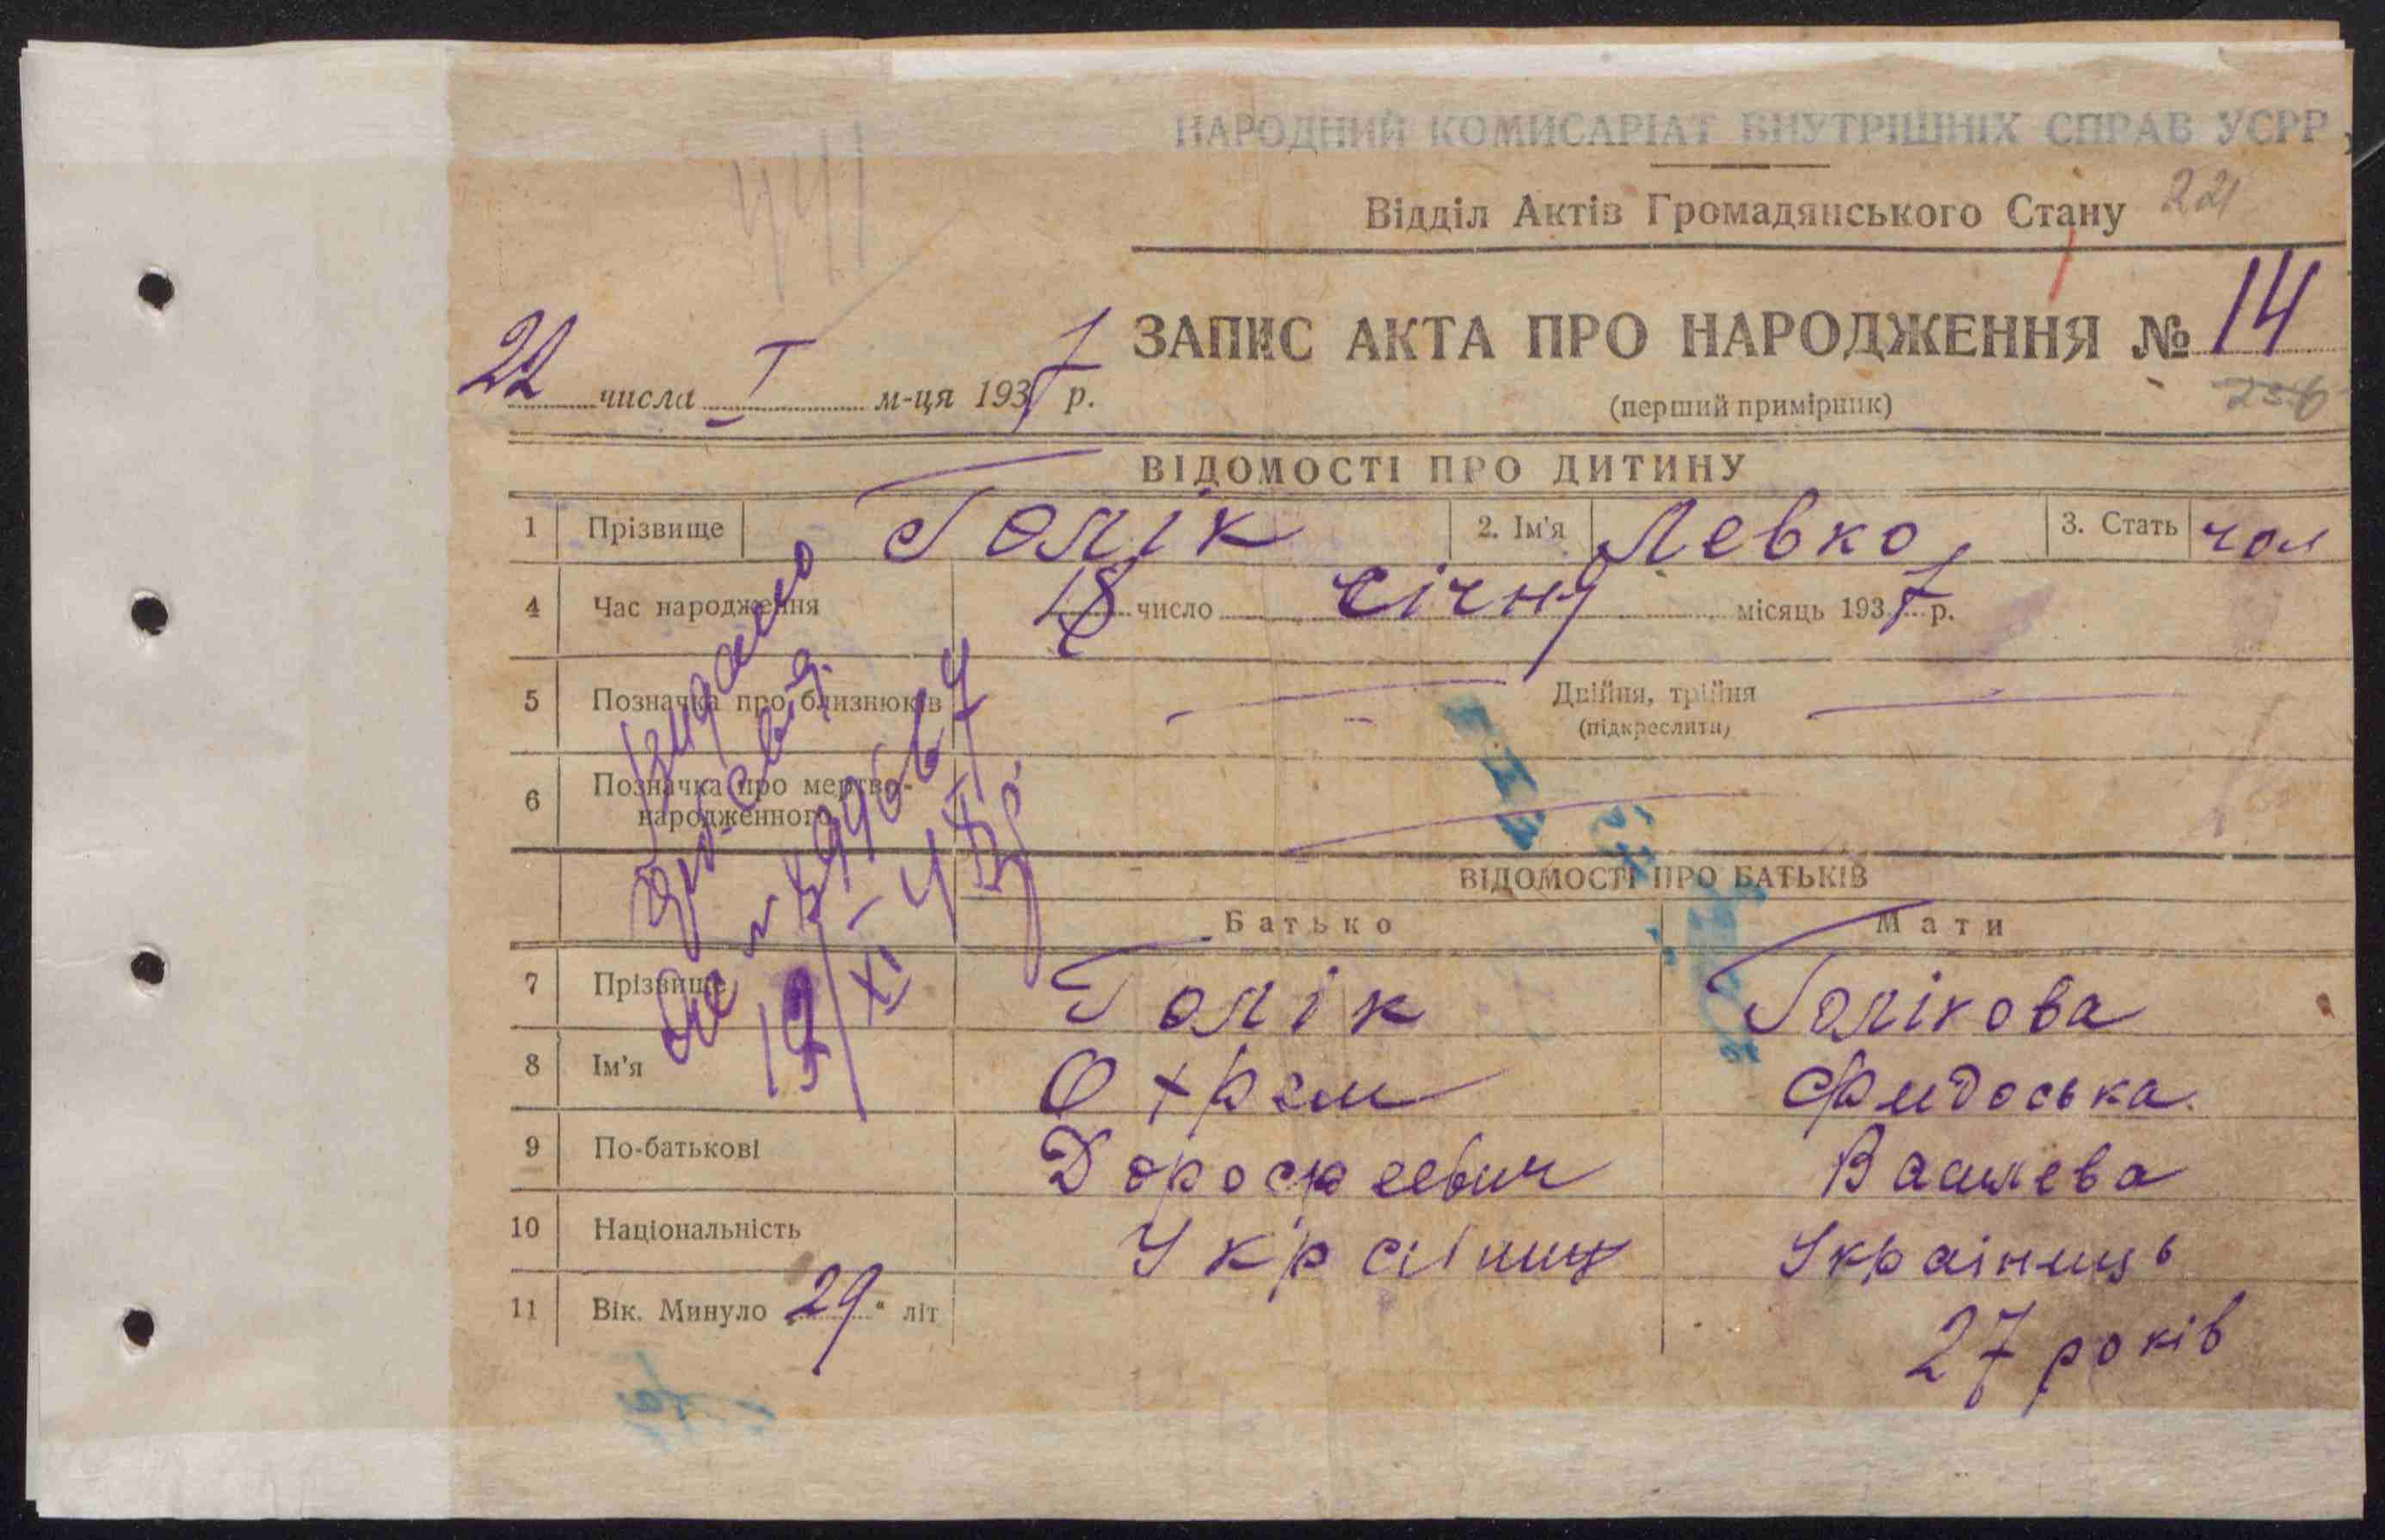 441
НАРОДНИЙ КОМИСАРІАТ ВНУТРІШНІХ СПРАВ УСРР
Відділ Актів Громадянського Стану 221
ЗАПИС АКТА ПРО НАРОДЖЕННЯ № 14
22 числа I м-ця 1937 р.
(перший примірник)
ВІДОМОСТІ ПРО ДИТИНУ
1 Прізвище Голік 2. Ім'я Левко 3. Стать чол
4 Час народження 18 число січня місяць 1937 р.
5 Позначка про близнюків Двійня, трійня
(підкреслити)
6 Позначка про мертво-
народженного
Видано
ВІДОМОСТІ ПРО БАТЬКІВ
Батько Мати
7 Прізвище Голік Голікова
8 Ім'я Охрем Фидоська
9 По-батькові Дорофеевич Василева
10 Національність Україниц Україниць
11 Вік. Минуло 29 літ 27 років